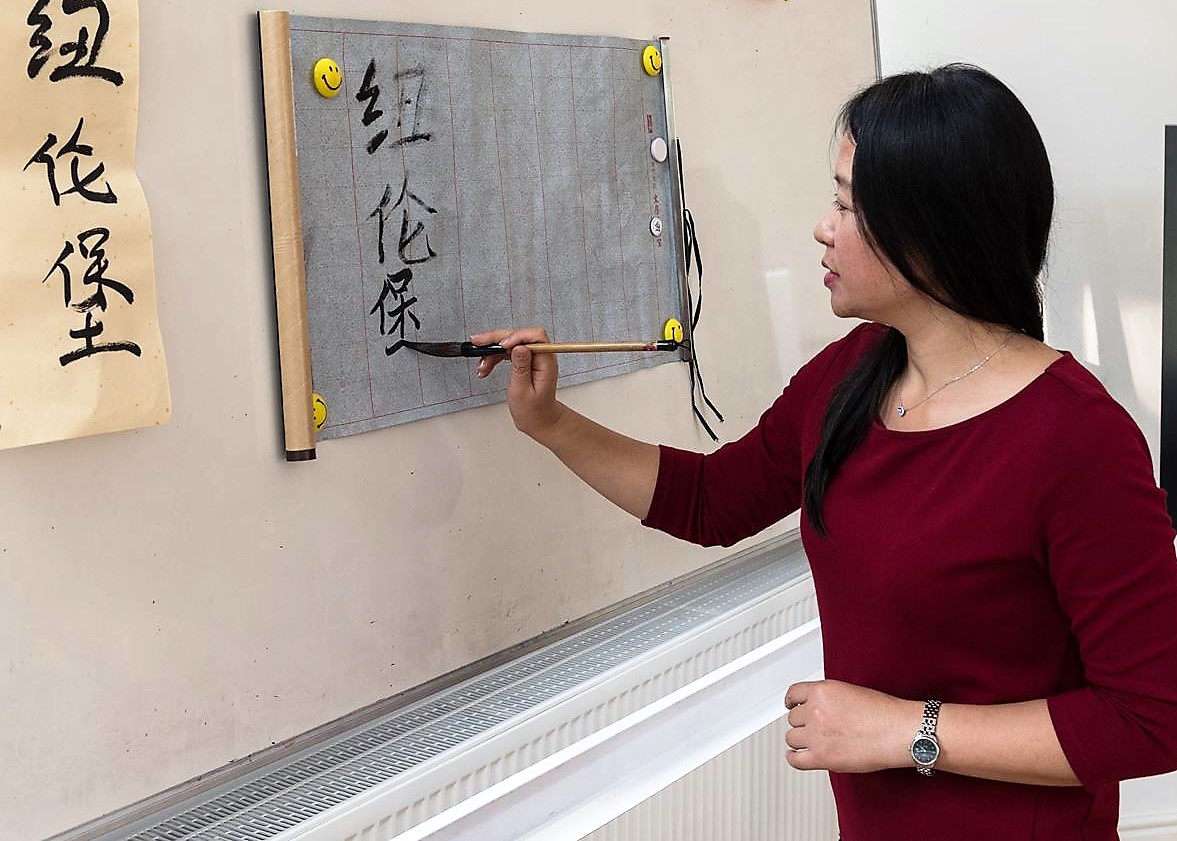 纽伦堡
纽伦保